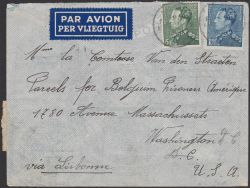 PAR AVION
PER VLIEGTUIG
Mme la Comtesse Van den Straeten
Parcels for Belgium Prisoners Amérique
1780 Avenue Massachussets
Washington
D.C.
via Lisbonne U.S.A